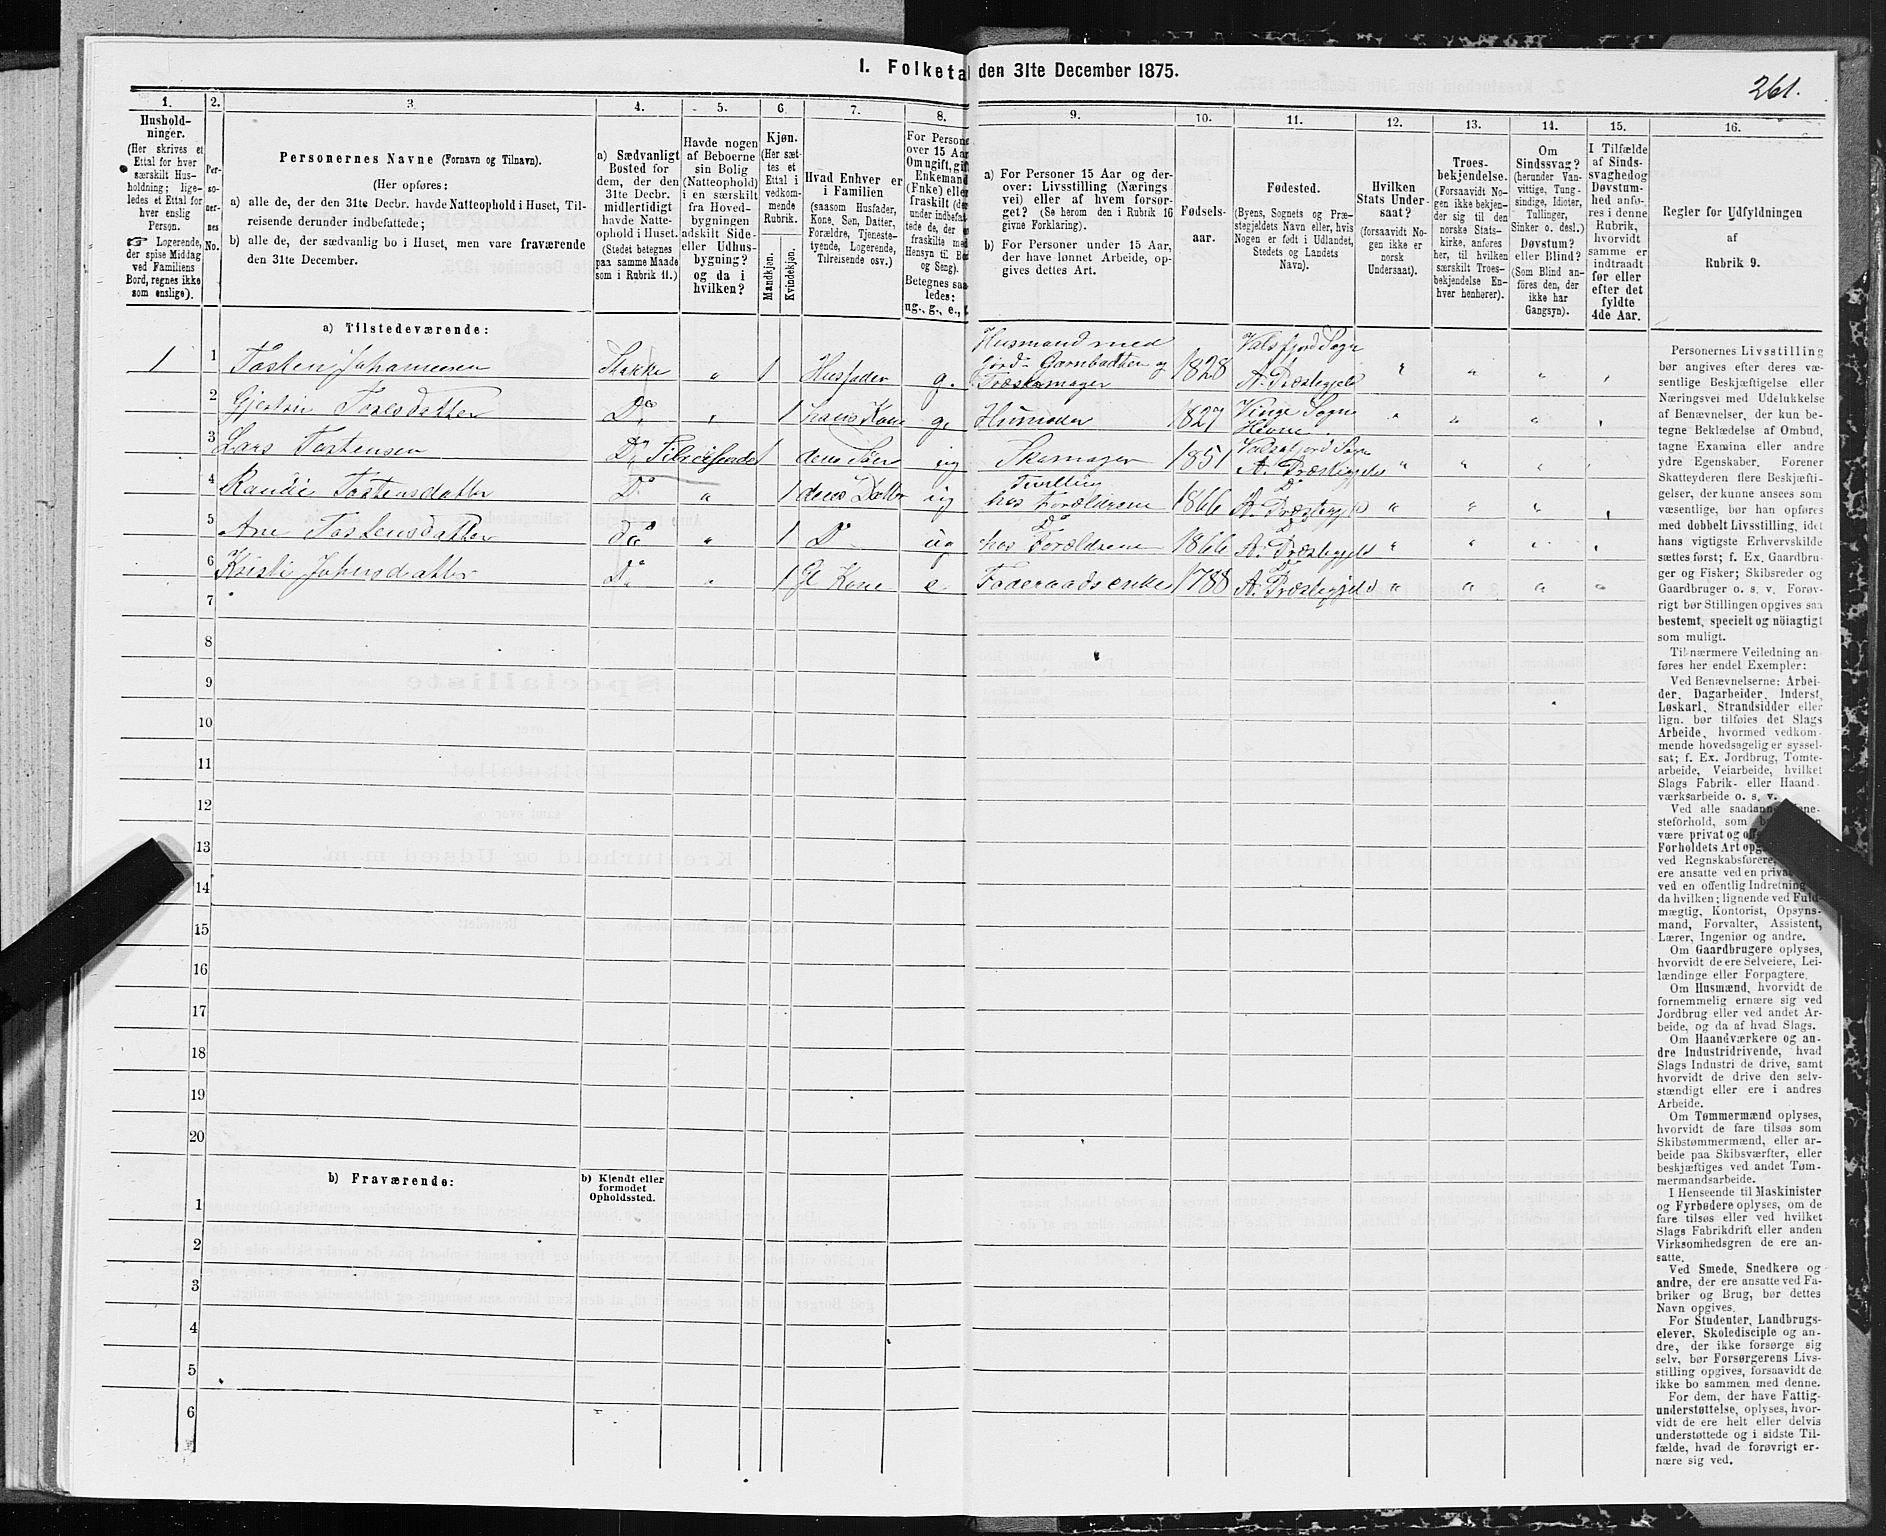 I. Folketal den 31te December 1875.
261.
1.
Hushold-
ninger.
(Her skrives et
Ettal for hver
særskilt Hus-
holdning; lige-
ledes et Ettal for
hver enslig
Person.
☞ Logerende,
der spise Middag
ved Familiens
Bord, regnes ikke
som enslige).
2.
Per-
so-
ner-
nes
No.
3
Personernes Navne (Fornavn og Tilnavn).
(Her opføres:
a) alle de, der den 31te Decbr. havde Natteophold i Huset, Til-
reisende derunder indbefattede;
b) alle de, der sædvanlig bo i Huset, men vare fraværende
den 31te December.
4.
a) Sædvanligt
Bosted for
dem, der den
31te Decbr.
midlertidigt
havde Natte-
ophold i Huset.
(Stedet betegnes
paa samme Maade
som i Rubrik 11.)
5.
Havde nogen
af Beboerne
sin Bolig
(Natteophold)
i en særskilt
fra Hoved-
bygningen
adskilt Side-
eller Udhus-
bygning?
og da i
hvilken?
6
Kjøn.
(Her sæt-
tes et
Ettal i
vedkom-
mende
Rubrik.
Mandkjøn.
Kvindekjøn.
7.
Hvad Enhver er
i Familien
(saasom Husfader,
Kone, Søn, Datter,
Forældre, Tjeneste-
tyende, Logerende,
Tilreisende osv.)
8.
For Persone
over 15 Aar
Om ugift, gift
Enkemand
(Enke) eller
fraskilt (der-
under indbefat-
tede de, der er
fraskilte med
Hensyn til Bord
og Seng).
Betegnes saa-
ledes:
ug., g., e., f.
9.
a) For Personer 15 Aar og der-
over: Livsstilling (Nærings
vei) eller af hvem forsør-
get? (Se herom den i Rubrik 16
givne Forklaring).
b) For Personer under 15 Aar,
der have lønnet Arbeide, op-
gives dettes Art.
10.
Fødsels-
aar.
11.
Fødested.
(Byens, Sognets og Præ-
stegjeldets Navn eller, hvis
Nogen er født i Udlandet,
Stedets og Landets
Navn).
12.
Hvilken
Stats Under-
saat?
(forsaavidt No-
gen ikke er
norsk
Undersaat).
13.
Troes-
bekjendelse.
(Forsaavidt No-
gen ikke bekjen-
der sig til den
norske Stats-
kirke, anføres
her, til hvilken
særskilt Troes-
bekjendelse En-
hver henhører).
14.
Om
Sindssvag?
(herunder Van-
vittige, Tung-
sindige, Idioter,
Tullinger,
Sinker o. desl.)
Døvstum?
eller Blind?
(Som Blind an-
føres den, der
ikke har
Gangsyn).
15.
I Tilfælde
af Sinds-
svaghed og
Døvstum-
hed anfø-
res i denne
Rubrik,
hvorvidt
samme er
indtraadt
før eller
efter det
fyldte
4de Aar.
16.
Regler for Udfyldningen
af
Rubrik 9.
a) Tilstedeværende:
1 1 Tosten Johannesen Stakke „ 1 Husfader g. Husmand med Jord- Garnbødten og Træskomager 1828 Valsfjord Sogn A. Præstegjeld „ „ „ „
2 Gjertrin Toresdatter Do „ 1 hans Kone g. Husmoder 1827 Vinge Sogn Hevne „ „ „ „
3 Lars Tostensen Do Tilreisende 1 deres Søn ug Skomager 1851 Valsøfjord Sogn A. Præstegjeld „ „ „ „
4 Randi Tostensdatter Do „ 1 deres Datter ug Tvilling hos Forældrene 1866 Do A. Præstegjeld „ „ „ „
5 Ane Tostensdatter do „ 1 Do ug Do hos Forældrene 1866 Do A. Præstegjeld „ „ „ „
6 Kristi Johnsdatter Do „ 1 Gl Kone e Føderaadsenke 1788 Do A. Præstegjeld „ „ „ „
7
8
9
10
11
12
13
14
15
16
17
18
19
20
b) Fraværende:
b) Kjendt eller
formodet
Opholdssted.
1
2
3
4
5
6
Personernes Livsstilling
bør angives efter deres væ-
sentlige Beskjæftigelse eller
Næringsvei med Udelukkelse
af Benævnelser, der kun be-
tegne Beklædelse af Ombud,
tagne Examina eller andre
ydre Egenskaber. Forener
Skatteyderen flere Beskjæfti-
gelser, der kunne ansees som
væsentlige, bør han opføres
med dobbelt Livsstilling, idet
hans vigtigste Erhvervskilde
sættes først; f. Ex. Gaardbru-
ger og Fisker; Skibsreder og
Gaardbruger o. s. v. Forøv-
rigt bør Stillingen opgives saa
bestemt, specielt og nöiagtigt
som muligt.
Til nærmere Veiledning an-
føres her endel Exempler:
Ved Benævnelserne: Arbei-
der, Dagarbeider, Inderst,
Løskarl, Strandsidder eller
lign. bør tilføies det Slags
Arbeide, hvormed vedkom-
mende hovedsagelig er syssel-
sat; f. Ex. Jordbrug, Tomte-
arbeide, Veiarbeide, hvilket
Slags Fabrik- eller Haand-
værksarbeide o. s. v.
Ved alle saadanne
steforhold, som
være privat og
Forholdets Art
ved Regnskabsførere,
ere ansatte ved en privat
ved en offentlig Indretning
da hvilken; lignende ved Fuld-
mægtig, Kontorist, Opsyns-
mand, Forvalter, Assistent,
Lærer, Ingeniør og andre.
Om Gaardbrugere oplyses,
hvorvidt de ere Selveiere, Lei-
lændinge eller Forpagtere.
Om Husmænd, hvorvidt de
fornemmelig ernære sig ved
Jordbrug eller ved andet Ar-
beide, og da af hvad Slags.
Om Haandværkere og an-
dre Industridrivende, hvad
Slags Industri de drive, samt
hvorvidt de drive den selv-
stændigt eller ere i andres
Arbeide.
Om Tømmermænd oplyses,
hvorvidt de fare tilsøs som
Skibstømmermænd, eller ar-
beide paa Skibsværfter, eller
beskjæftiges ved andet Tøm-
mermandsarbeide.
I Henseende til Maskinister
og Fyrbødere oplyses, om de
fare tilsøs eller ved hvilket
Slags Fabrikdrift eller anden
Virksomhedsgren de ere an-
satte.
Ved Smede, Snedkere og
andre, der ere ansatte ved Fa-
briker og Brug, bør dettes
Navn opgives.
For Studenter, Landbrugs-
elever, Skoledisciple og an-
dre, der ikke forsørge sig
selv, bør Forsørgerens Livs-
stilling opgives, forsaavidt de
ikke bo sammen med denne.
For dem, der have Fattig-
understøttelse, oplyses, hvor-
vidt de ere helt eller delvis
understøttede og i sidste Til-
fælde, hvad de forøvrigt er-
nære sig ved.